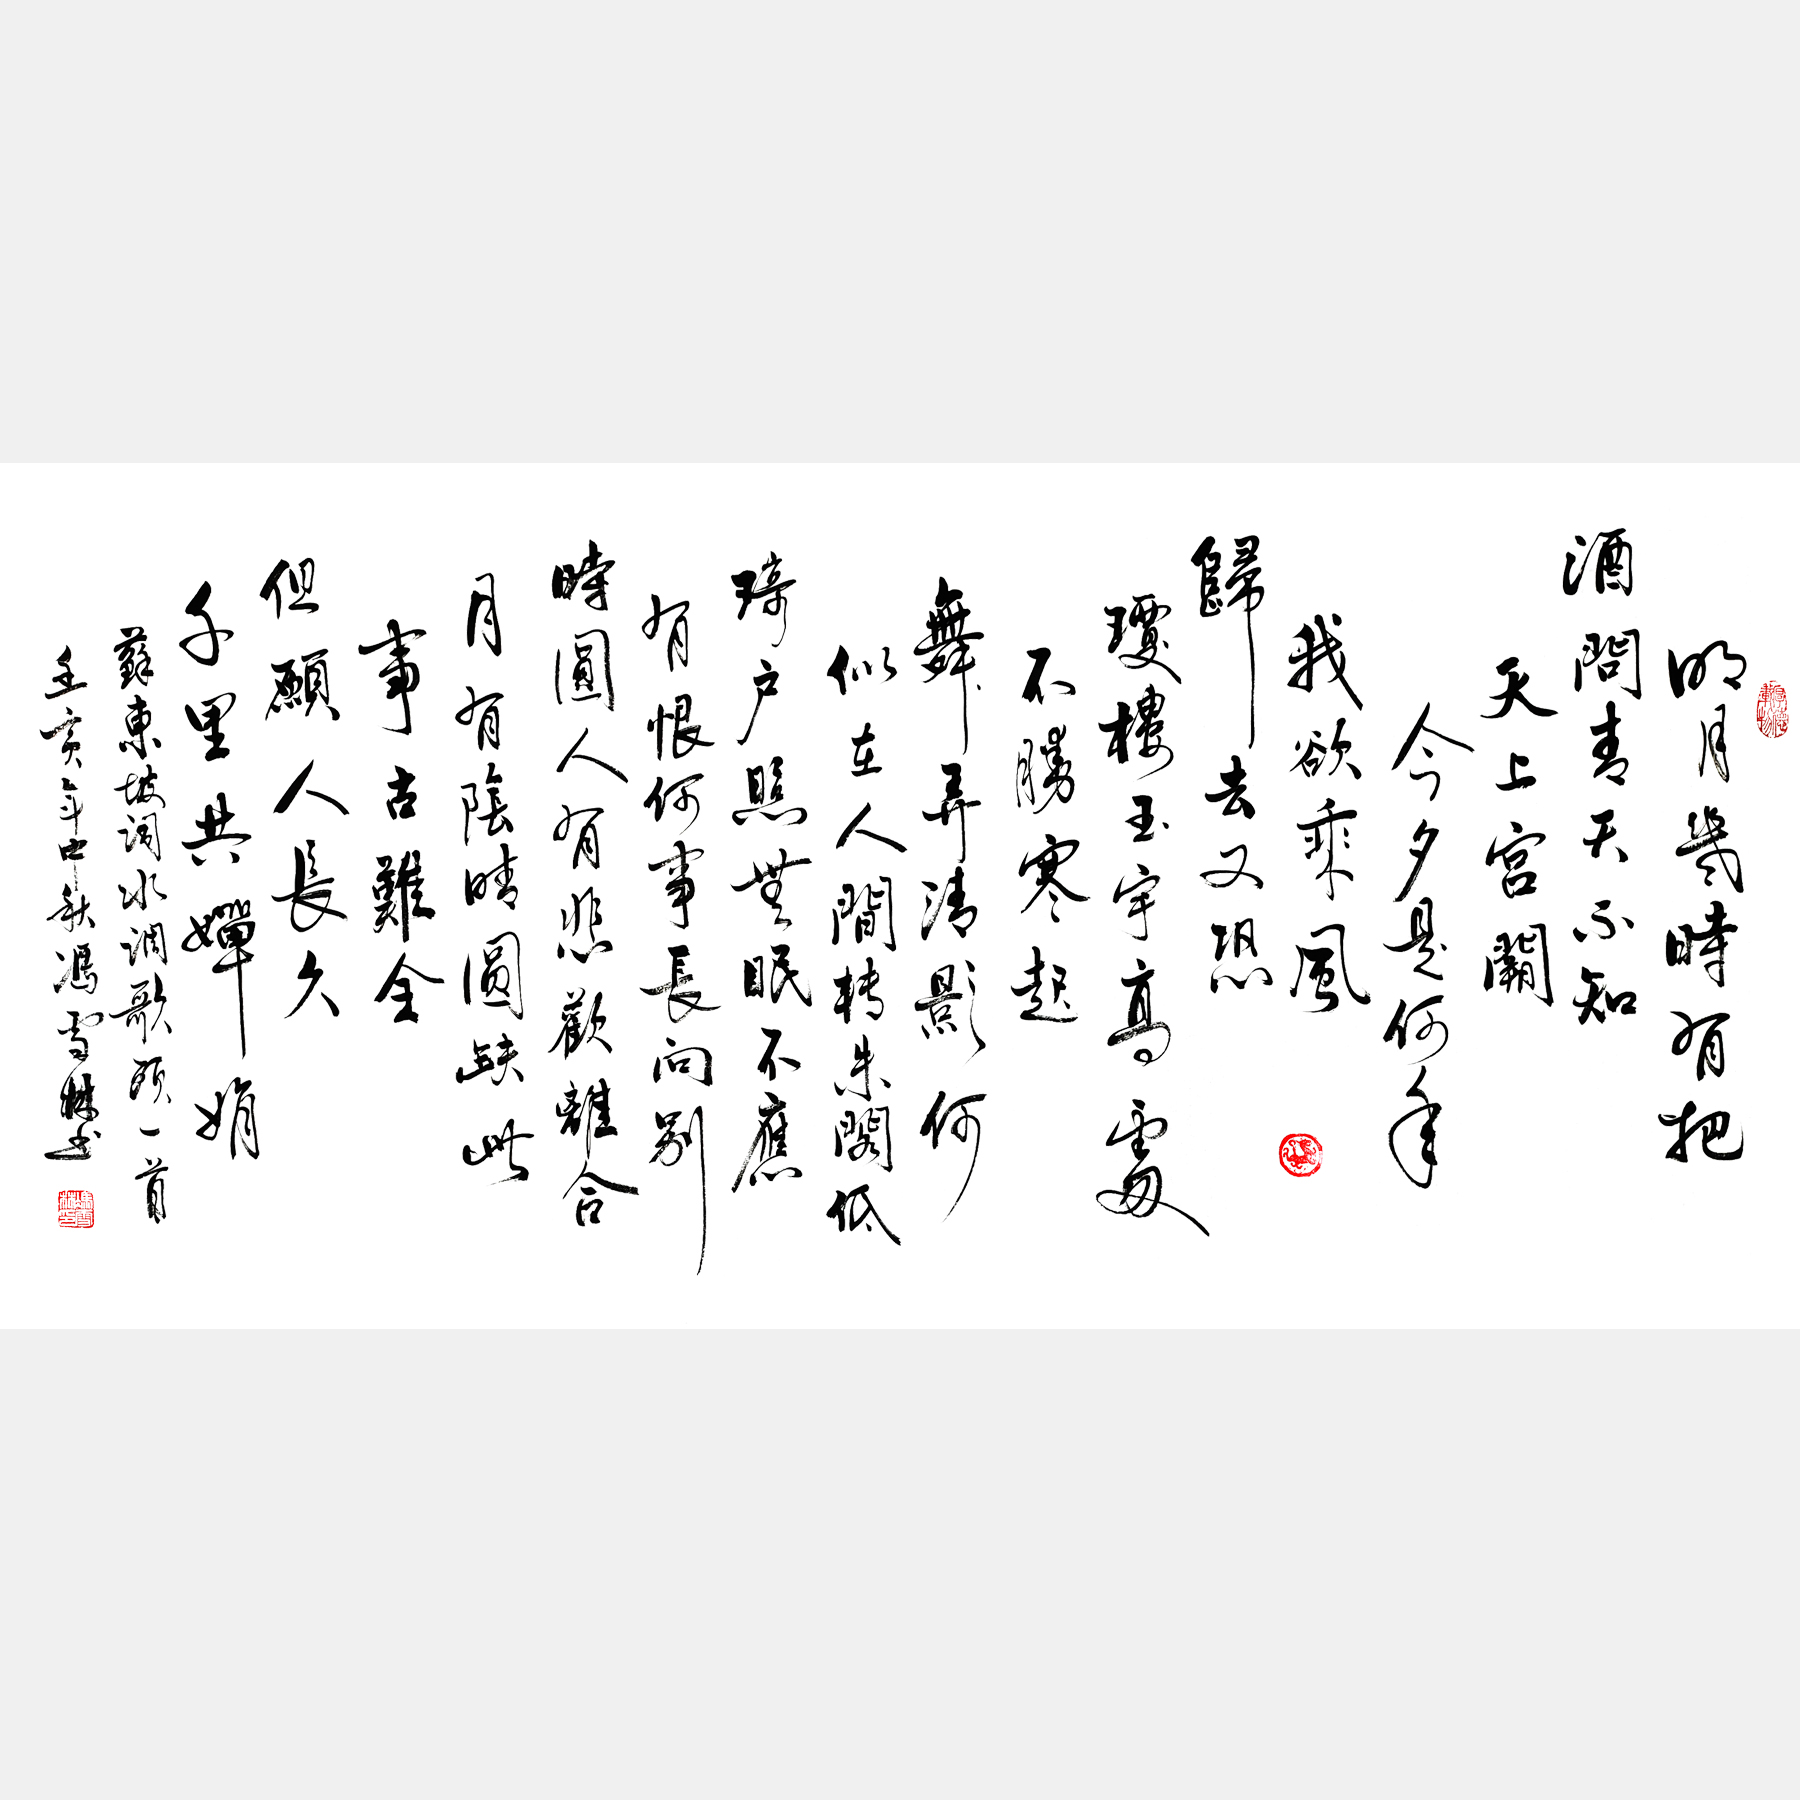 明月幾時有把
酒問青天不知
天上宮闕
今夕是何年
我欲乘風
歸去又恐
瓊樓玉宇高處
不勝寒起
舞弄清影何
似在人間轉朱閣低
琦户照無眠不應
有恨何事長向别
時圓人有悲歡離合
月有陰晴圓缺此
事古難全
但願人長久
千里共嬋娟
蘇東坡詞水調歌頭一首
壬寅年中秋馮雪林书